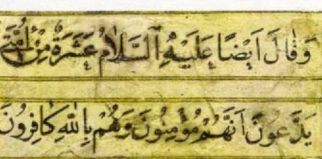 وَقَالَ اَيْضًا عَلَيْهِ السَّلَامُ عَشَرَةٌ مِنْ اُمَّتِي
يَدَّعُونَ اَنَّهُمْ مُؤْمِنُونَ وَهُمْ بِاللّٰهِ كَافِرُونَ